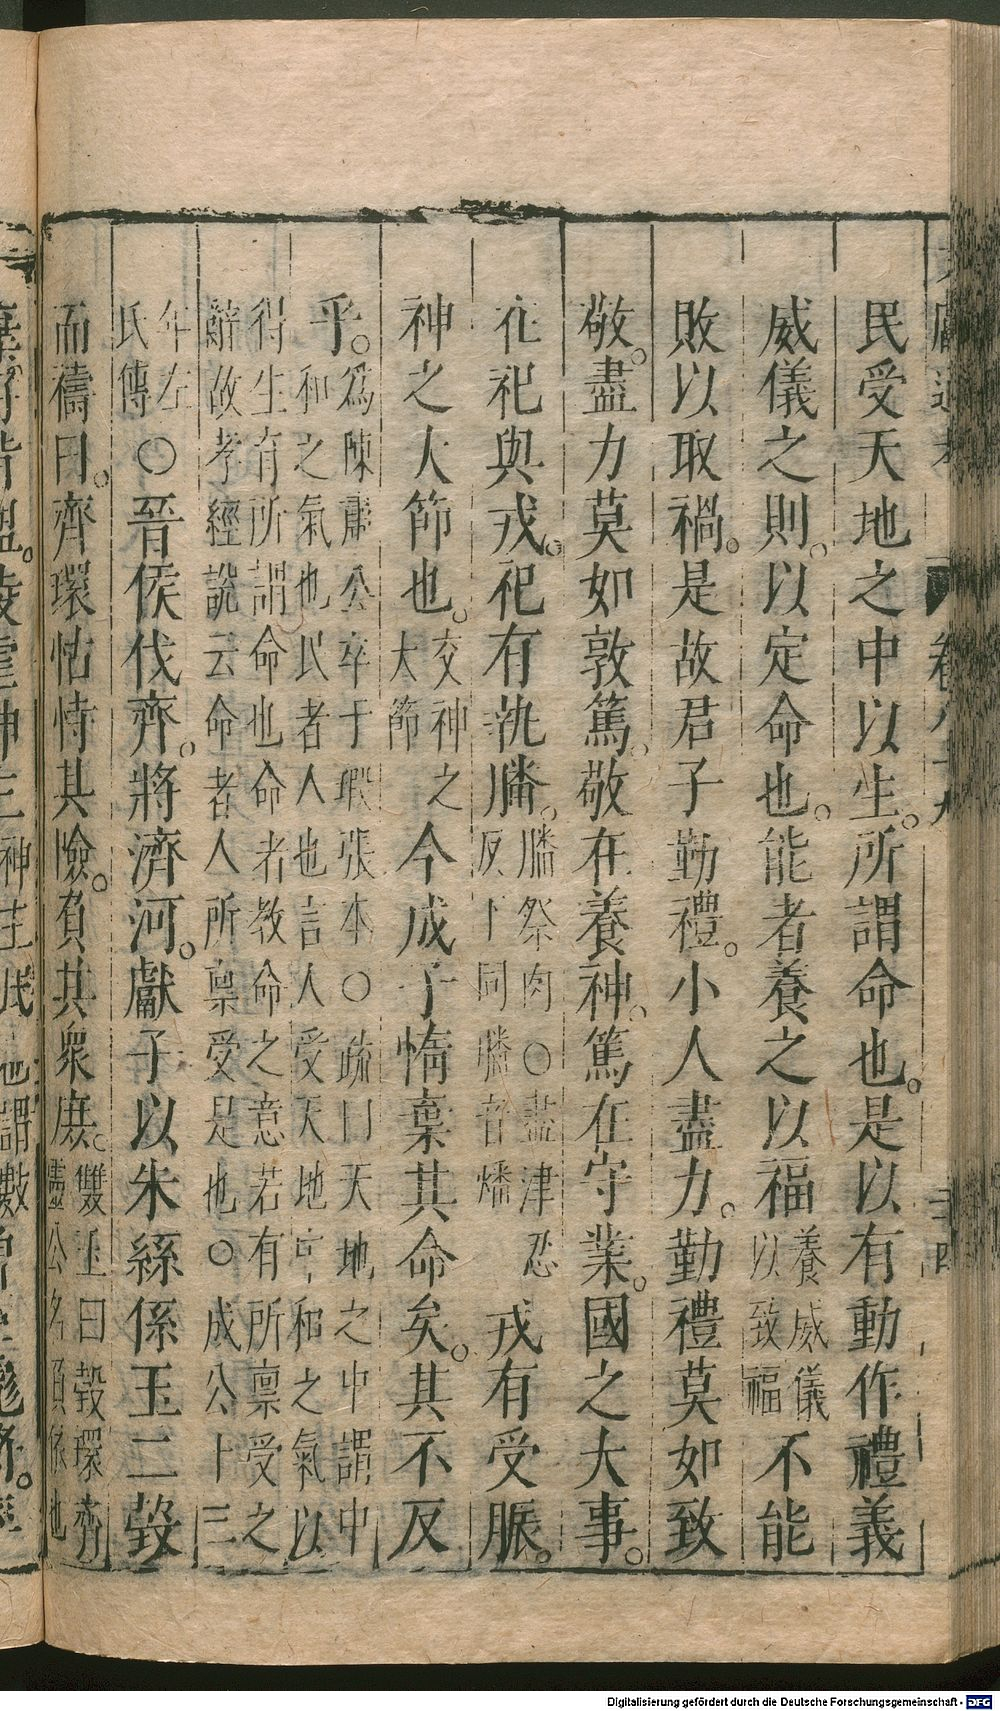 民受天地之中以生。所謂命也。是以有動作禮義
威儀之則。以定命也。能者養之以福養威儀以致福不能
敗以取禍。是故君子勤禮。小人盡力。勤禮莫如致
敬。盡力莫如敦篤。敬在養神。篤在守業。國之大事。
在祀與戎。祀有執膰。膰祭肉〇盡津忍反下同膰音燔戎有受脤。
神之大節也。交神之大節今成子惰棄其命矣。其不反
乎。爲陳肅公卒于瑕張本〇疏曰天地之中謂中和之氣也民者人也言人受天地中和之氣以
得生育所謂命也命者教命之意若有所禀受之辭故孝經說云命者人所禀受是也〇成公十三
年左氏傳〇晉侯伐齊。將濟河。獻子以朱絲係玉二瑴
而禱曰。齊環怙恃其險。負其衆庶。雙玉曰瑴環齊靈公名負依也
卷八十九
三十四
Digitalisierung gefördert durch die Deutsche Forschungsgemeinschaft - DFG